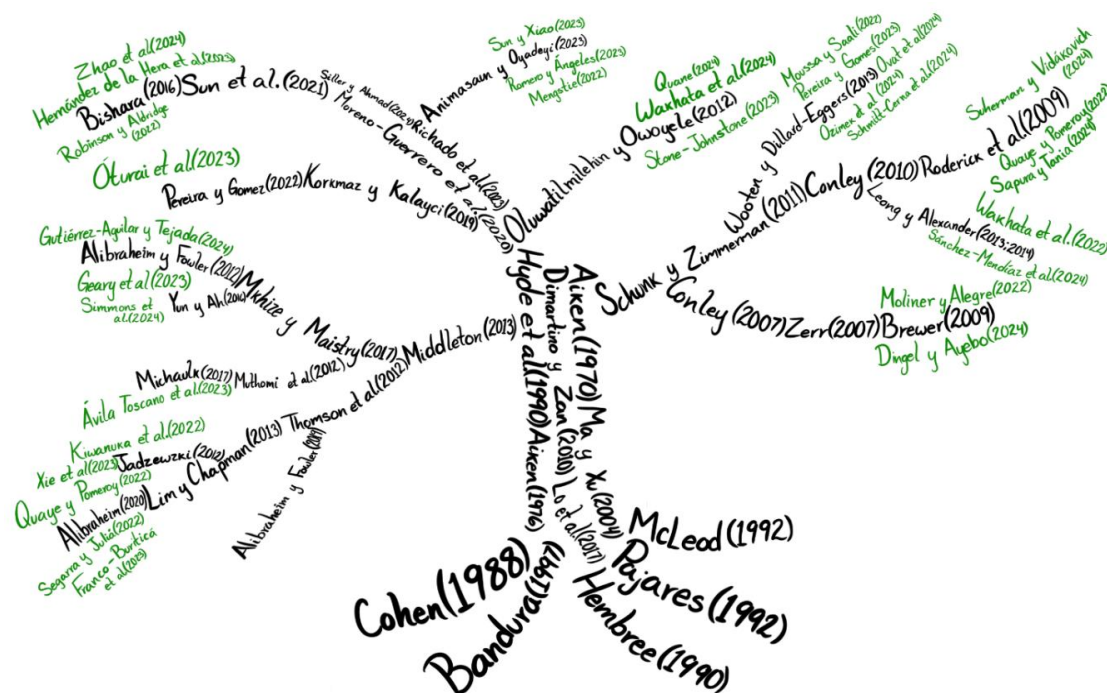 Zhao et al(2024)
Hernández de la Hera et al(2023)
Bishara (2016)
Robinson y Aldridge
(2022)
Sun et al.(2021)
Siller y Ahmad(2024)
Moreno-Guerrero et al(2020)
Richado et al(2023)
Animasaun y Oyadeyi(2023)
Sun y Xiao(2023)
Romero y Ángeles(2023)
Mengatie(2022)
Óturai et al(2023)
Pereira y Gomez(2022)
Korkmaz y Kalayci(2019)
Oluwatilmilehin y Owoyele(2012)
Quane(2024)
Wakhata et al(2024)
Stone-Johnstone(2023)
Moussa y Saali(2022)
Pereira y Gomes(2023)
Wooten y Dillard-Eggers(2013)
Ovat et al(2024)
Ozimek et al(2024)
Schmitt-Cerna et al(2024)
Schunk y Zimmerman(2011)
Conley(2010)
Roderick et al.(2009)
Suherman y Vidákovich
(2024)
Quaye y Pomeroy(2022)
Sapura y Tania(2024)
Leong y Alexander(2013;2014)
Wakhata et al.(2022)
Sánchez-Mendíaz et al(2024)
Conley(2007)
Zerr(2007)
Brewer(2009)
Moliner y Alegre(2022)
Dingel y Ayebo(2024)
Gutiérrez-Aguilar y Tejada(2024)
Alibraheim y Fowler(2012)
Geary et al(2023)
Simmons et
al.(2024)
Yun y Ah(2016)
Mkhize y Maistry(2017)
Middleton(2013)
Michaulk(2017)
Muthomi et al.(2012)
Ávila Toscano et al(2023)
Thomson et al(2012)
Kiwanuka et al.(2022)
Xie et al(2023)
Jadzewzki(2012)
Quaye y Pomeroy(2022)
Alibraheim(2020)
Lim y Chapman(2013)
Segarra y Juliá(2022)
Franco-Buriticá
et al(2023)
Alibraheim y Fowler(2019)
Hyde et al(1990)
Aiken(1976)
Dimartino y Zan(2010)
Lo et al(2017)
Aiken(1970)
Ma y Xu(2004)
Cohen(1988)
Bandura(1997)
McLeod(1992)
Pajares(1992)
Hembree(1990)